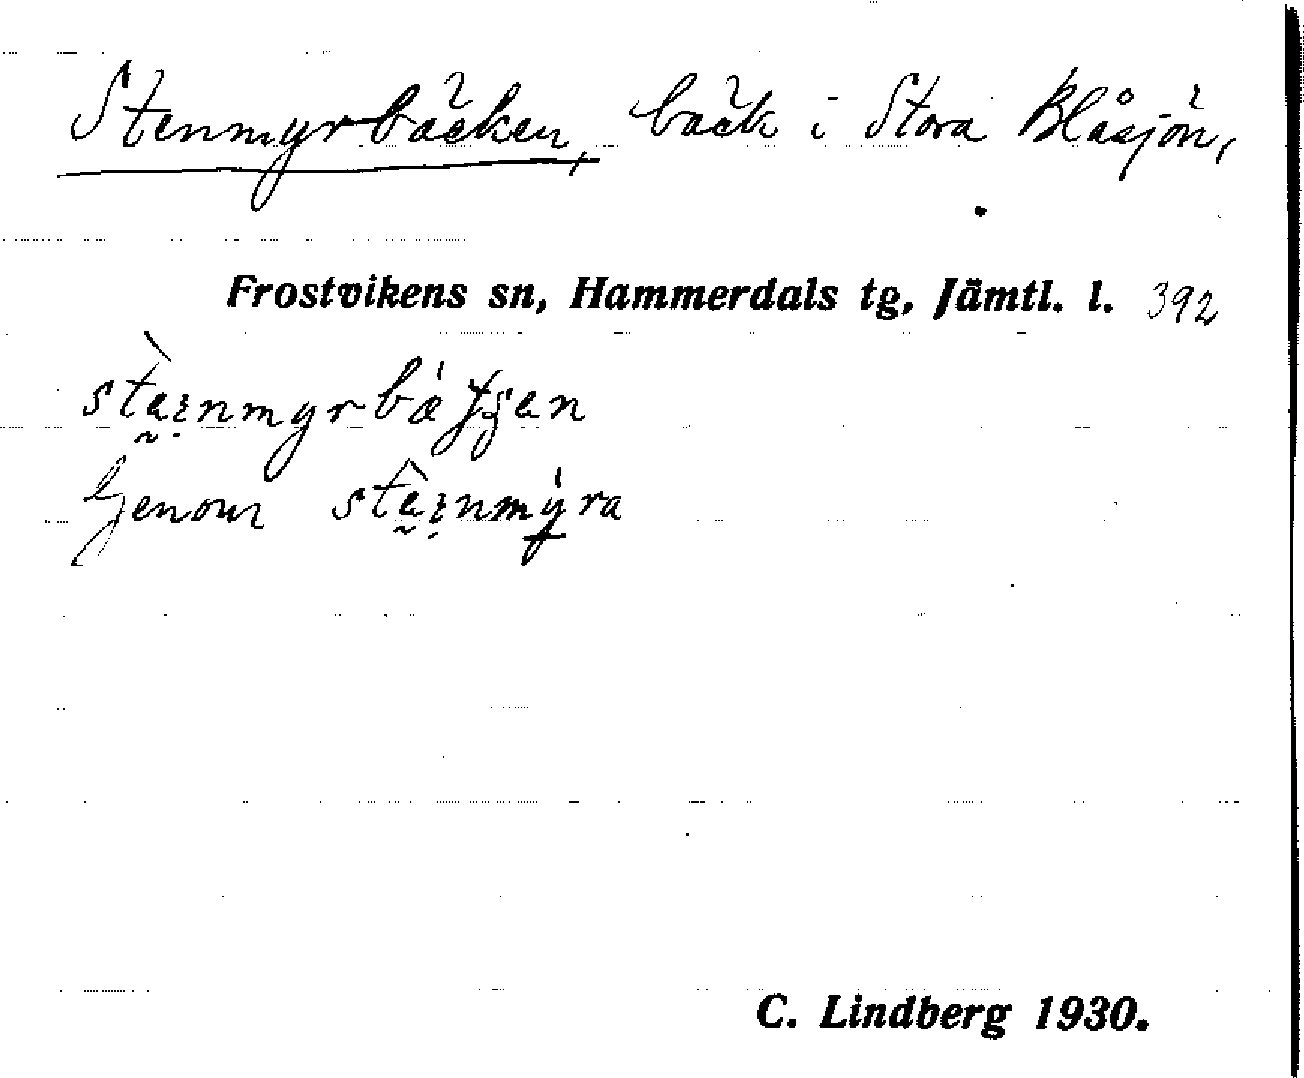 Stenmyrbäcken, bäck i Stora Blåsjön,
Frostvikens sn, Hammerdals tg, Jämtl. l. 392
Genom
C. Lindberg 1930.